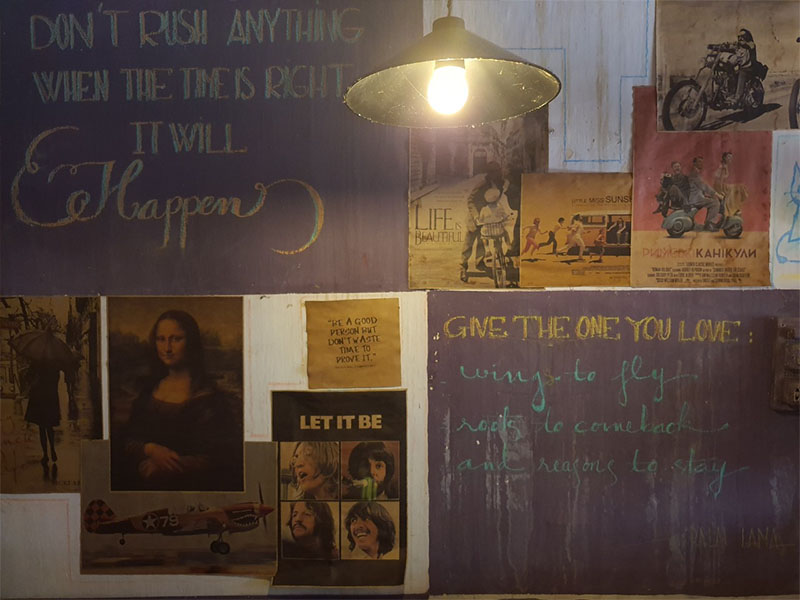 DON'T RUSH ANYTHING
WHEN THE TIME IS RIGHT
IT WILL
Happen
LIFE IS
BEAUTIFUL
LITTLE MISS SUNSH
КАНІКУЛИ
"BE A GOOD
PERSON BUT
DON'T WASTE
TIME TO
PROVE IT."
LET IT BE
79
GIVE THE ONE YOU LOVE :
wing to fly
roots to comeback
and reasons to stay